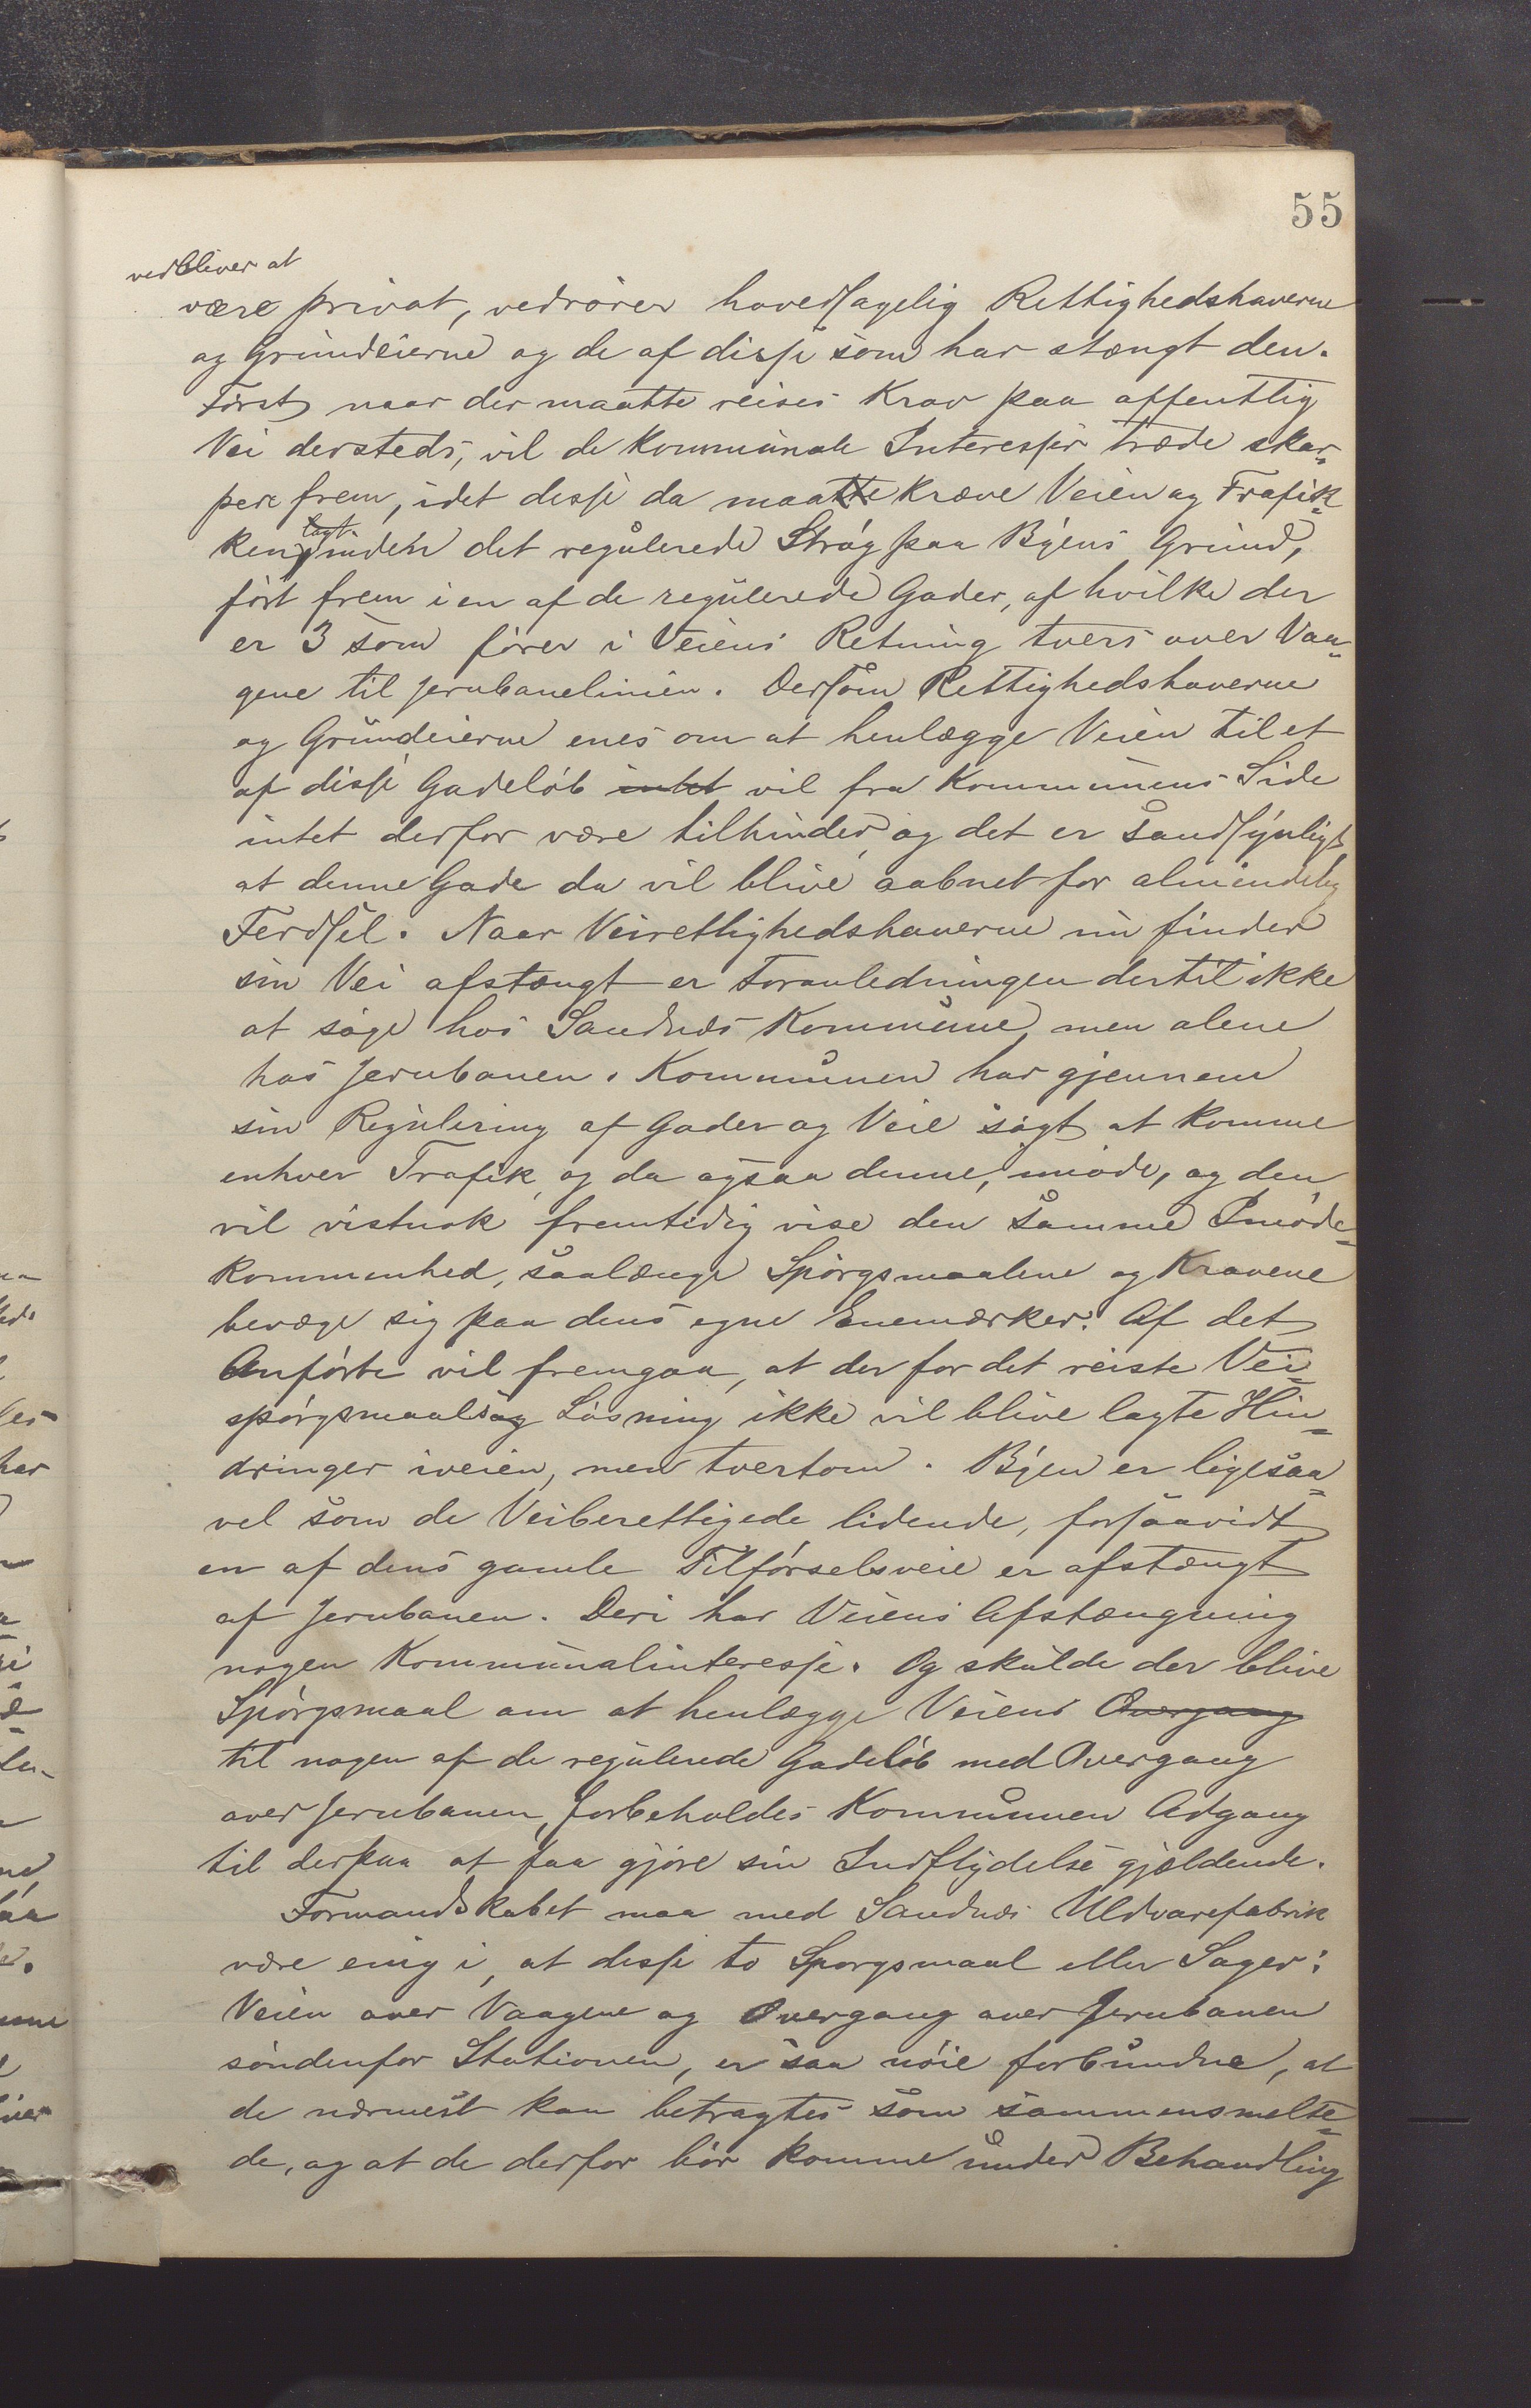 55
vedbliver at
være privat, vedrører hovedsagelig Rettighedshaverne
og Grundeierne og de af disse som har stængt den.
Først naar der maatte reises Krav paa offentlig
Vei dersteds, vil de kommunale Interesser træde skar-
pere frem, idet disse da maatte kræve Veien og Trafik-
ken lagt inden det regulerede Strøg paa Byens Grund,
ført frem i en af de regulerede Gader, af hvilke der
er 3 som fører i Veiens Retning tvers over Vaa-
gene til Jernbanelinien. Dersom Rettighedshaverne
og Grundeierne enes om at henlægge Veien til et
af disse Gadeløb intet vil fra Kommunens Side
intet derfor være tilhinder, og det er sandsynligt,
at denne Gade da vil blive aabnet for almindelig
Ferdsel. Naar Veirettighedshaverne nu finder
sin Vei afstængt er Foranledningen dertil ikke
at søge hos Sandnes Kommune, men alene
hos Jernbanen. Kommunen har gjennem
sin Regulering af Gader og Veie søgt at komme
enhver Trafik, og da ogsaa denne, imøde, og den
vil vistnok fremtidig vise den samme Imøde-
kommenhed, saalænge Spørgsmaalene og Kravene
bevæge sig paa dens egne Enemærker. Af det
Anførte vil fremgaa, at der for det reiste Vei-
spørgsmaals Løsning ikke vil blive lagte Hin-
dringer iveien, men tvertom. Byen er ligesaa-
vel som de Veiberettigede lidende, forsaavidt
en af dens gamle Tilførselsveie er afstængt
af Jernbanen. Deri har Veiens Afstængning
nogen Kommunalinteresse. Og skulde der blive
Spørgsmaal om at henlægge Veiens Overgang
til nogen af de regulerede Gadeløb med Overgang
over Jernbanen, forbeholdes Kommunen Adgang
til derpaa at faa gjøre sin Indflydelse gjældende.
Formandskabet maa med Sandnes Uldvarefabrik
være enig i, at disse to Sporgsmaal eller Sager:
Veien over Vaagene og Overgang over Jernbanen
søndenfor Stationen, er saa nøie forbundne, at
de nærmest kan betragtes som sammensmelte-
de, og at de derfor bør komme under Behandling